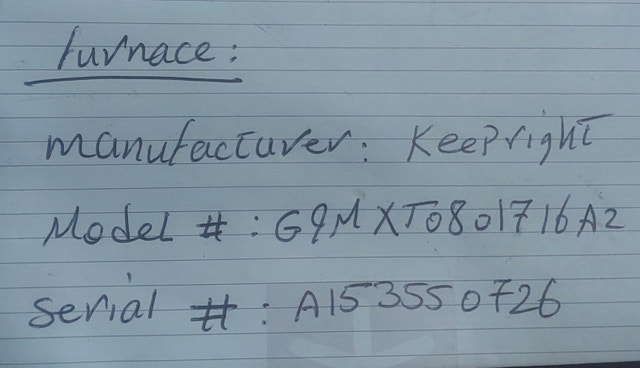 furnace:
manufacturer: Keepright
Model #: G9MXT0801716A2
Serial #: A153550726